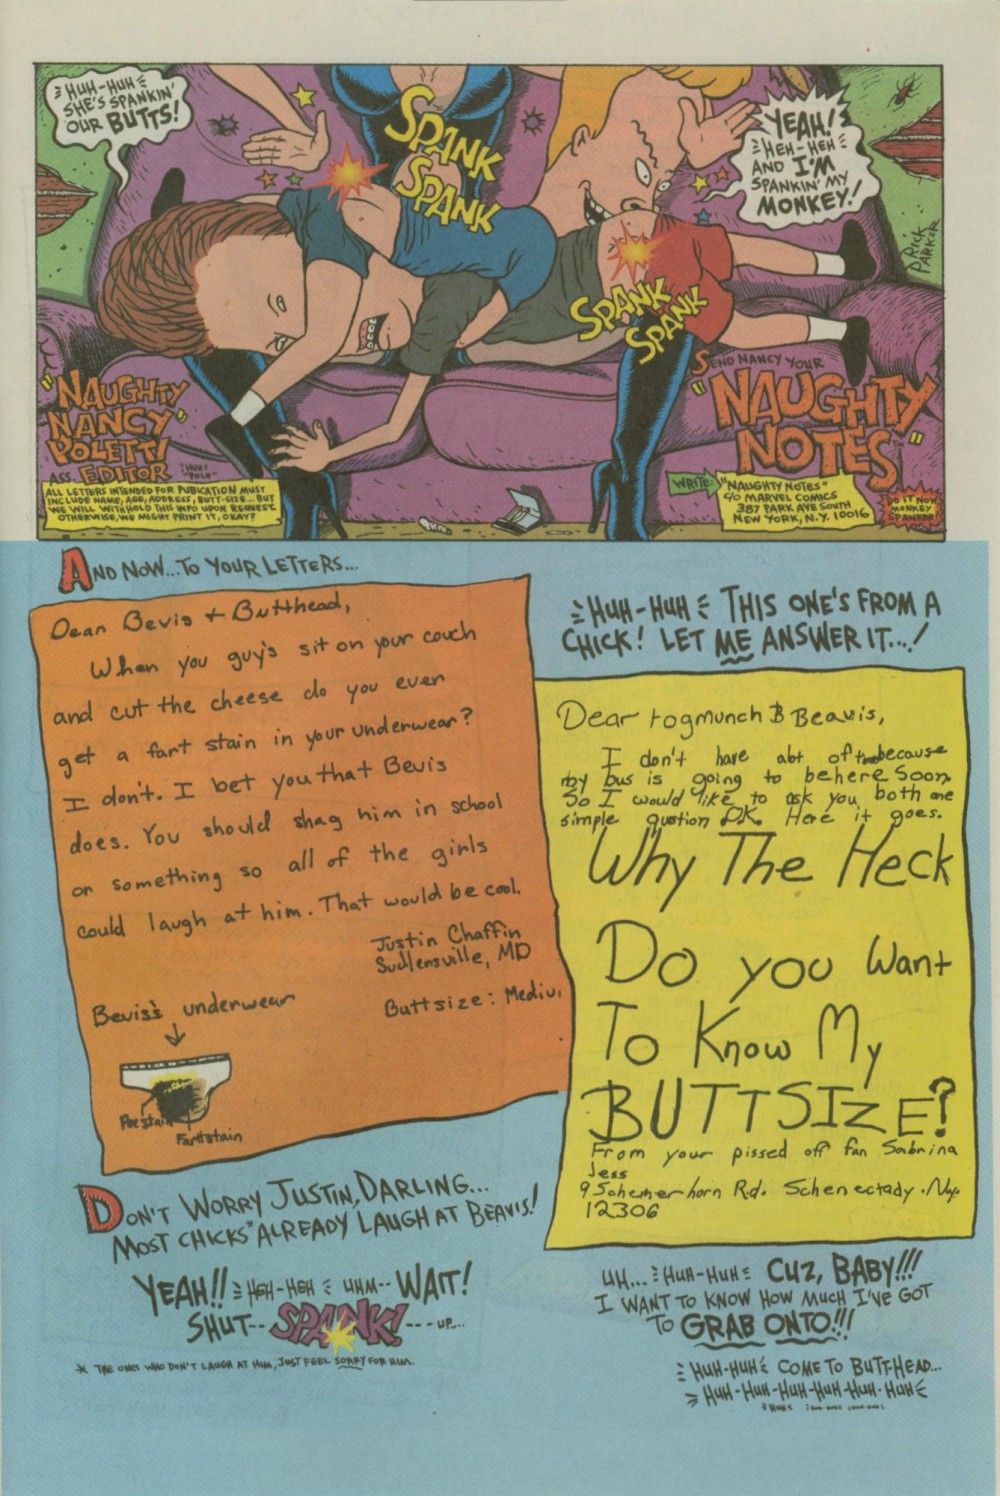 HUH-HUH
SHE'S SPANKIN'
OUR BUTTS!
SPANK
SPANK
YEAH!
HEH-HEH
AND I'M
SPANKIN' MY
MONKEY!
RICK
PARKER
SPANK
SPANK
"NAUGHTY
NANCY"
POLETTI
ASS. EDITOR
HUH!
"POLE"
ALL LETTERS INTENDED FOR PUBLICATION MUST
INCLUDE NAME, AGE, ADDRESS, BUTT-SIZE... BUT
WE WILL WITHHOLD THIS INFO UPON REQUEST.
OTHERWISE, WE MIGHT PRINT IT, OKAY?
SEND NANCY YOUR
"NAUGHTY
NOTES"
WRITE:
"NAUGHTY NOTES"
C/O MARVEL COMICS
387 PARK AVE SOUTH
NEW YORK, N.Y. 10016
DO IT NOW
MONKEY
SPANKER!
AND NOW...TO YOUR LETTERS...
Dear Bevis + Butthead,
When you guy's sit on your couch
and cut the cheese do you ever
get a fart stain in your underwear?
I don't. I bet you that Bevis
does. You should shag him in school
or something so all of the girls
could laugh at him. That would be cool.
Justin Chaffin
Sudlersville, MD
Buttsize: Mediu
Bevis's underwear
Pee stain
Fart stain
DON'T WORRY JUSTIN, DARLING...
MOST CHICKS* ALREADY LAUGH AT BEAVIS!
YEAH!! HEH-HEH UHM-- WAIT!
SHUT-- SPANK! ---UP...
* THE ONES WHO DON'T LAUGH AT HIM, JUST FEEL SORRY FOR HIM.
HUH-HUH THIS ONE'S FROM A
CHICK! LET ME ANSWER IT...!
Dear Fogmunch B Beavis,
I don't have abt of time because
my bus is going to be here soon.
So I would like to ask you both one
simple qustion O.K. Here it goes.
Why The Heck
Do you Want
To Know My
BUTTSIZE?
From your pissed off fan Sabrina
Jess
9 Schemerhorn Rd. Schenectady. Ny.
12306
UH... HUH-HUH CUZ, BABY!!!
I WANT TO KNOW HOW MUCH I'VE GOT
TO GRAB ONTO!!!
HUH-HUH COME TO BUTT-HEAD...
HUH-HUH-HUH-HUH-HUH-HUH